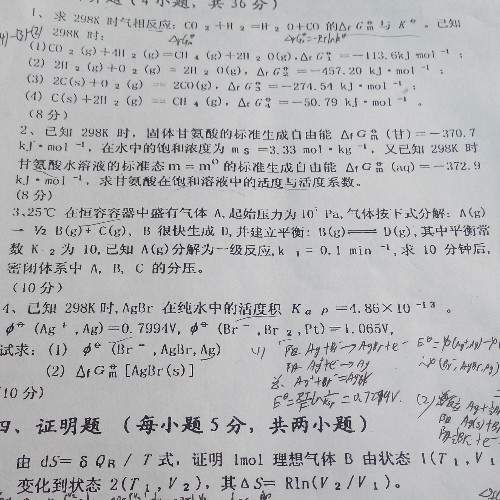 1、求 298K 时气相反应: CO ₂ +H ₂ =H ₂ O+CO 的Δr G m⊖ 与 K ⊖ 。已知
298K 时:
(1)CO ₂ (g)+4H ₂ (g)=CH ₄ (g)+2H ₂ O(g),Δr G 1⊖ =-113.6kJ·mol ⁻¹ ;
(2) 2H ₂ (g)+O ₂ (g) = 2H ₂ O(g), Δr G 2⊖ =-457.20 kJ·mol ⁻¹ ;
(3) 2C(s)+O ₂ (g) == 2CO(g), Δr G 3⊖ =-274.54 kJ·mol ⁻¹ ;
(4) C(s)+2H ₂ (g) == CH ₄ (g), Δr G 4⊖ =-50.79 kJ·mol ⁻¹ 。
(8分)
2、已知 298K 时, 固体甘氨酸的标准生成自由能 Δf G m⊖ (甘)=-370.7
kJ·mol ⁻¹ , 在水中的饱和浓度为 m s =3.33 mol·kg ⁻¹ , 又已知 298K 时
甘氨酸水溶液的标准态 m=m⊖ 的标准生成自由能 Δf G m⊖ (aq)=-372.9
kJ·mol ⁻¹ , 求甘氨酸在饱和溶液中的活度与活度系数。
(8分)
3、25℃ 在恒容容器中盛有气体 A,起始压力为 10⁵ Pa,气体按下式分解: A(g)
→ ½ B(g)+ C(g), B 很快生成 D,并建立平衡: B(g)⇌ D(g),其中平衡常
数 K ₂ 为 10,已知 A(g)分解为一级反应,k ₁ = 0.1 min ⁻¹ ,求 10 分钟后,
密闭体系中 A, B, C 的分压。
(10分)
4、已知 298K 时,AgBr 在纯水中的活度积 K a p =4.86×10 ⁻¹³ 。
φ⊖ (Ag ⁺ ,Ag)=0.7994V, φ⊖ (Br ⁻ ,Br ₂ ,Pt)=1.065V,
试求: (1) φ⊖ (Br ⁻ ,AgBr,Ag)
(2) Δf G m⊖ [AgBr(s)]
(10分)
四、证明题 (每小题 5 分, 共两小题)
由 dS= δ Q R / T 式, 证明 1mol 理想气体 B 由状态 1(T ₁ ,V ₁
变化到状态 2(T ₁ ,V ₂ ), 其 ΔS= Rln(V ₂ /V ₁ )。